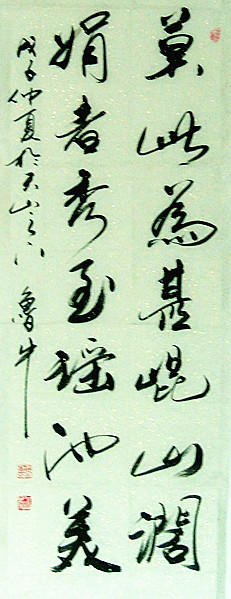 莫此为甚崐山阔
娟者秀至瑶池美
戊子仲夏於天山之下 鲁牛